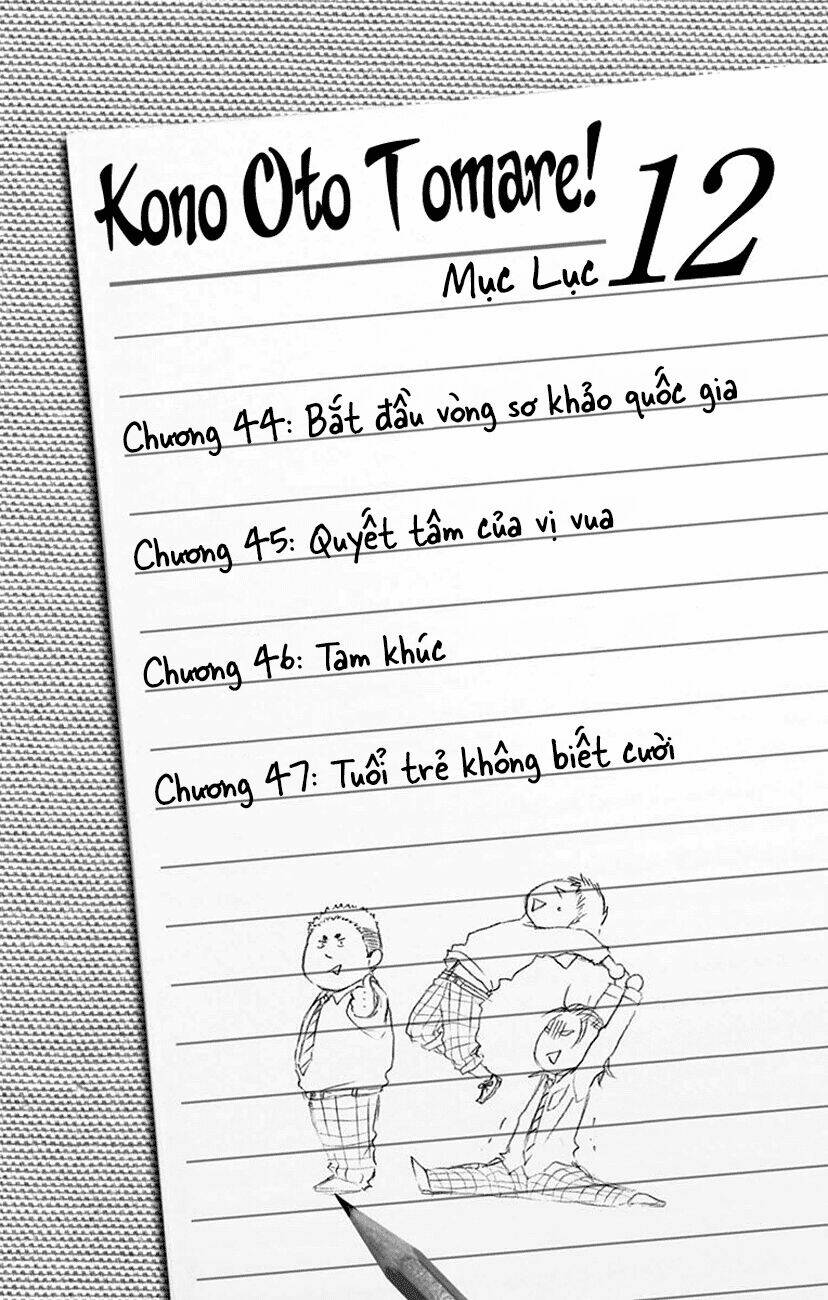 Kono Oto Tomare! 12
Mục Lục
Chương 44: Bắt đầu vòng sơ khảo quốc gia
Chương 45: Quyết tâm của vị vua
Chương 46: Tam khúc
Chương 47: Tuổi trẻ không biết cười